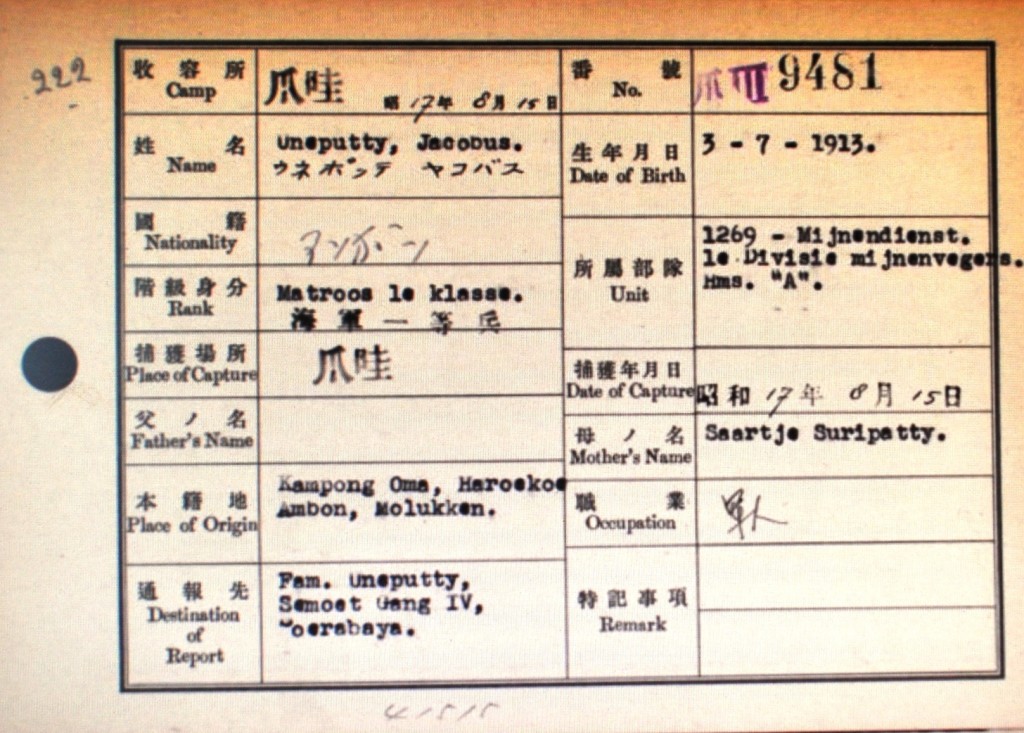 222
收容所
Camp
爪哇
昭 17年 8月 15日
番號
No.
爪 III 9481
姓名
Name
Uneputty, Jacobus.
ウネポッテ ヤコバス
生年月日
Date of Birth
3 - 7 - 1913.
國籍
Nationality
アンボン
所屬部隊
Unit
1269 - Mijnendienst.
1e Divisie mijnenvegers.
Hms. "A".
階級身分
Rank
Matroos 1e klasse.
海軍一等兵
捕獲場所
Place of Capture
爪哇
捕獲年月日
Date of Capture
昭和 17年 8月 15日
父ノ名
Father's Name
母ノ名
Mother's Name
Saartje Suripatty.
本籍地
Place of Origin
Kampong Oma, Haroekoe
Ambon, Molukken.
職業
Occupation
軍人
通報先
Destination
of
Report
Fam. Uneputty,
Semoet Gang IV,
Soerabaya.
特記事項
Remark
41515